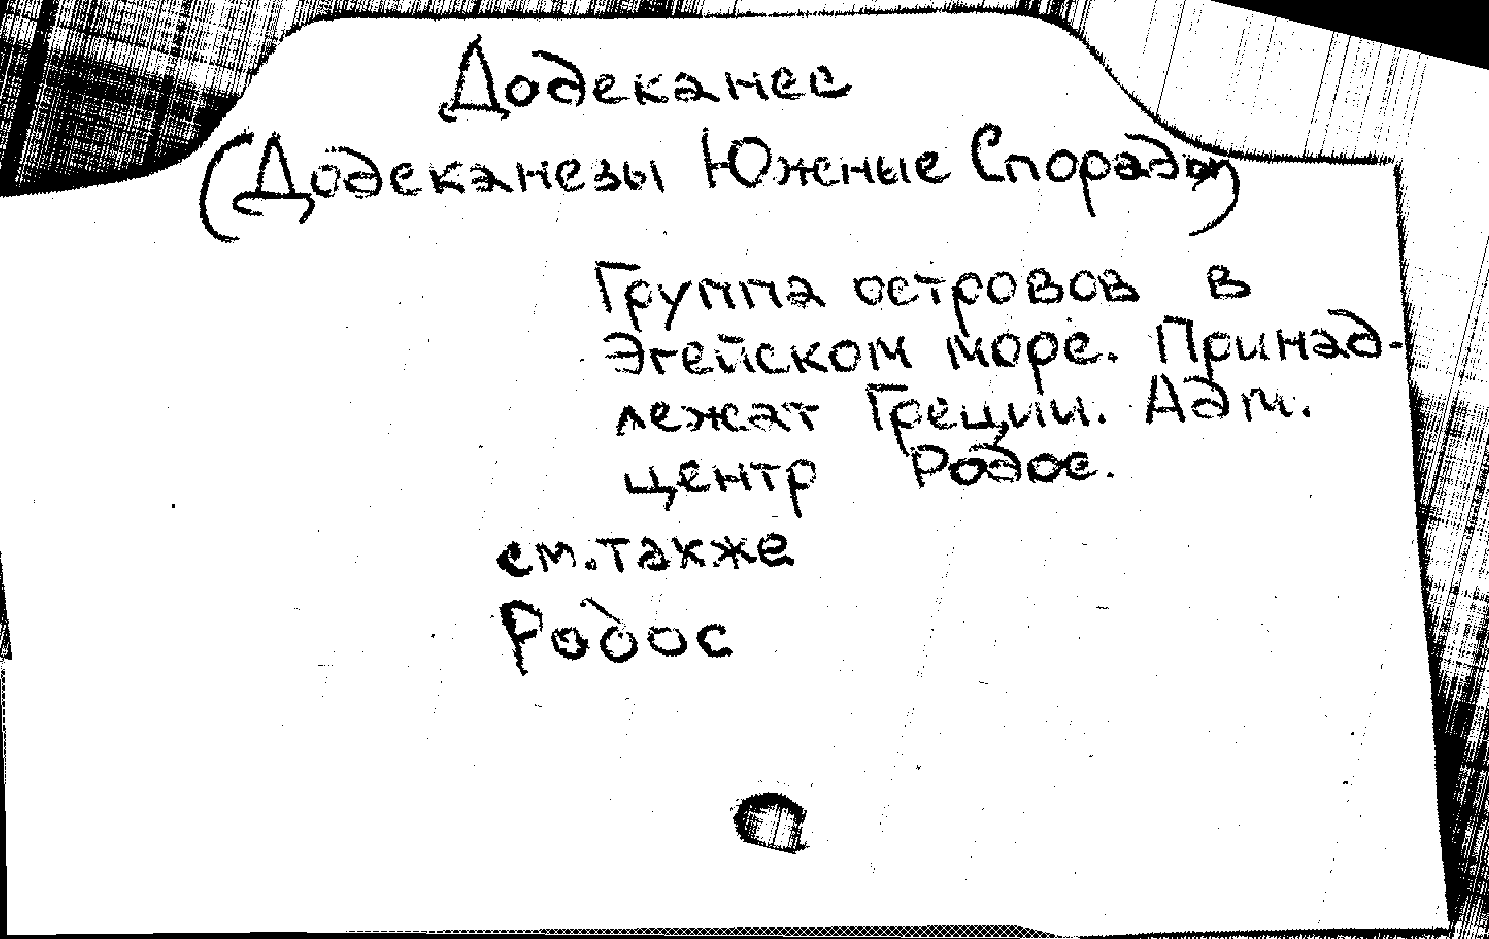 Додеканес
(Додеканезы Южные Спорады)
Группа островов в
Эгейском море. Принад-
лежат Греции. Адм.
центр Родос.
см. также
Родос